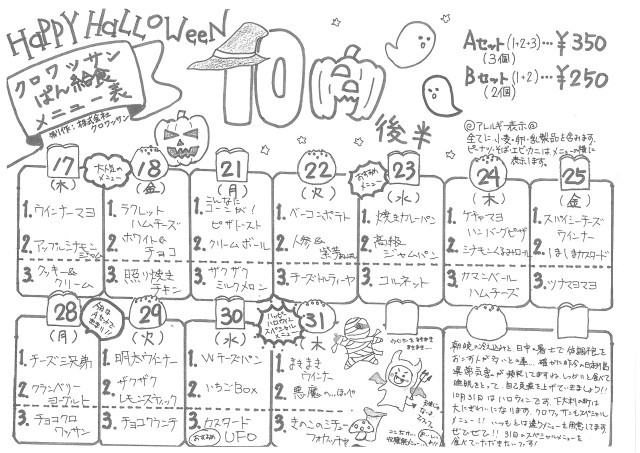 HAPPY HALLOWEEN
クロワッサン
ぱん給食
メニュー表
制作：株式会社
クロワッサン
10月
後半
Aセット(1+2+3)…¥350
(3個)
Bセット(1+2)…¥250
(2個)
@アレルギー表示@
全てに小麦・卵・乳製品を含みます。
ピーナッツ・そば・エビ・カニはメニューの横に
表示します。
17
(木)
1.ウインナーマヨ
2.アップルシナモン
ジャム
3.クッキー&
クリーム
大人気の
メニュー
18
(金)
1.ラフレット
ハムチーズ
2.ホワイト&
チョコ
3.照り焼き
チキン
21
(月)
1.こんなに
コーンが!
ピザトースト
2.クリームボール
3.ザクザク
ミルクメロン
22
(火)
1.ベーコンポテト
2.人参&
3.チーズトルティーヤ
おすすめ
メニュー
23
(水)
1.焼きカレーパン
2.高級
ジャムパン
3.コルネット
24
(木)
1.ケチャマヨ
ハンバーグピザ
2.シナモンくるみロール
3.カマンベール
ハムチーズ
25
(金)
1.スパイシーチーズ
ウインナー
2.ほしほしカスタード
3.ツナマヨマヨ
28
(月)
1.チーズ三兄弟
2.クランベリー
ヨーグルト
3.チョコクロ
ワッサン
29
(火)
1.明太ウインナー
2.ザクザク
レモンスティック
3.チョコクランチ
30
(水)
1.Wチーズパン
2.いちごBOX
3.カスタード
UFO
おすすめ
ハッピー
ハロウィン
スペシャル
メニュー
31
(木)
1.まきまき
ウイナー
2.悪魔の…ほっぺ
3.きのこのシチュー
フォカッチャ
朝晩の冷え込みと日中の暑さで体調を
10月31日はハロウィンです。下大利の町は
大にぎわいになります。クロワッサンもスペシャル
メニュー!!いつもとは違うメニューを用意してます。
ぜひぜひ!!31日のスペシャルメニューを
食べていただきたいです!